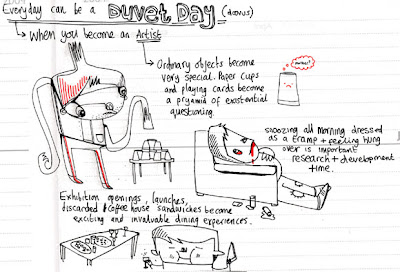 Everyday can be a DUVET DAY (bonus)
When you become an Artist
Ordinary objects become
very special. Paper cups
and playing cards become
a pryamid of existential
questioning.
snoozing all morning dressed
as a tramp + feeling hung
over is important
research + development
time.
Exhibition openings, launches,
discarded coffee house sandwiches become
exciting and invaluable dining experiences.